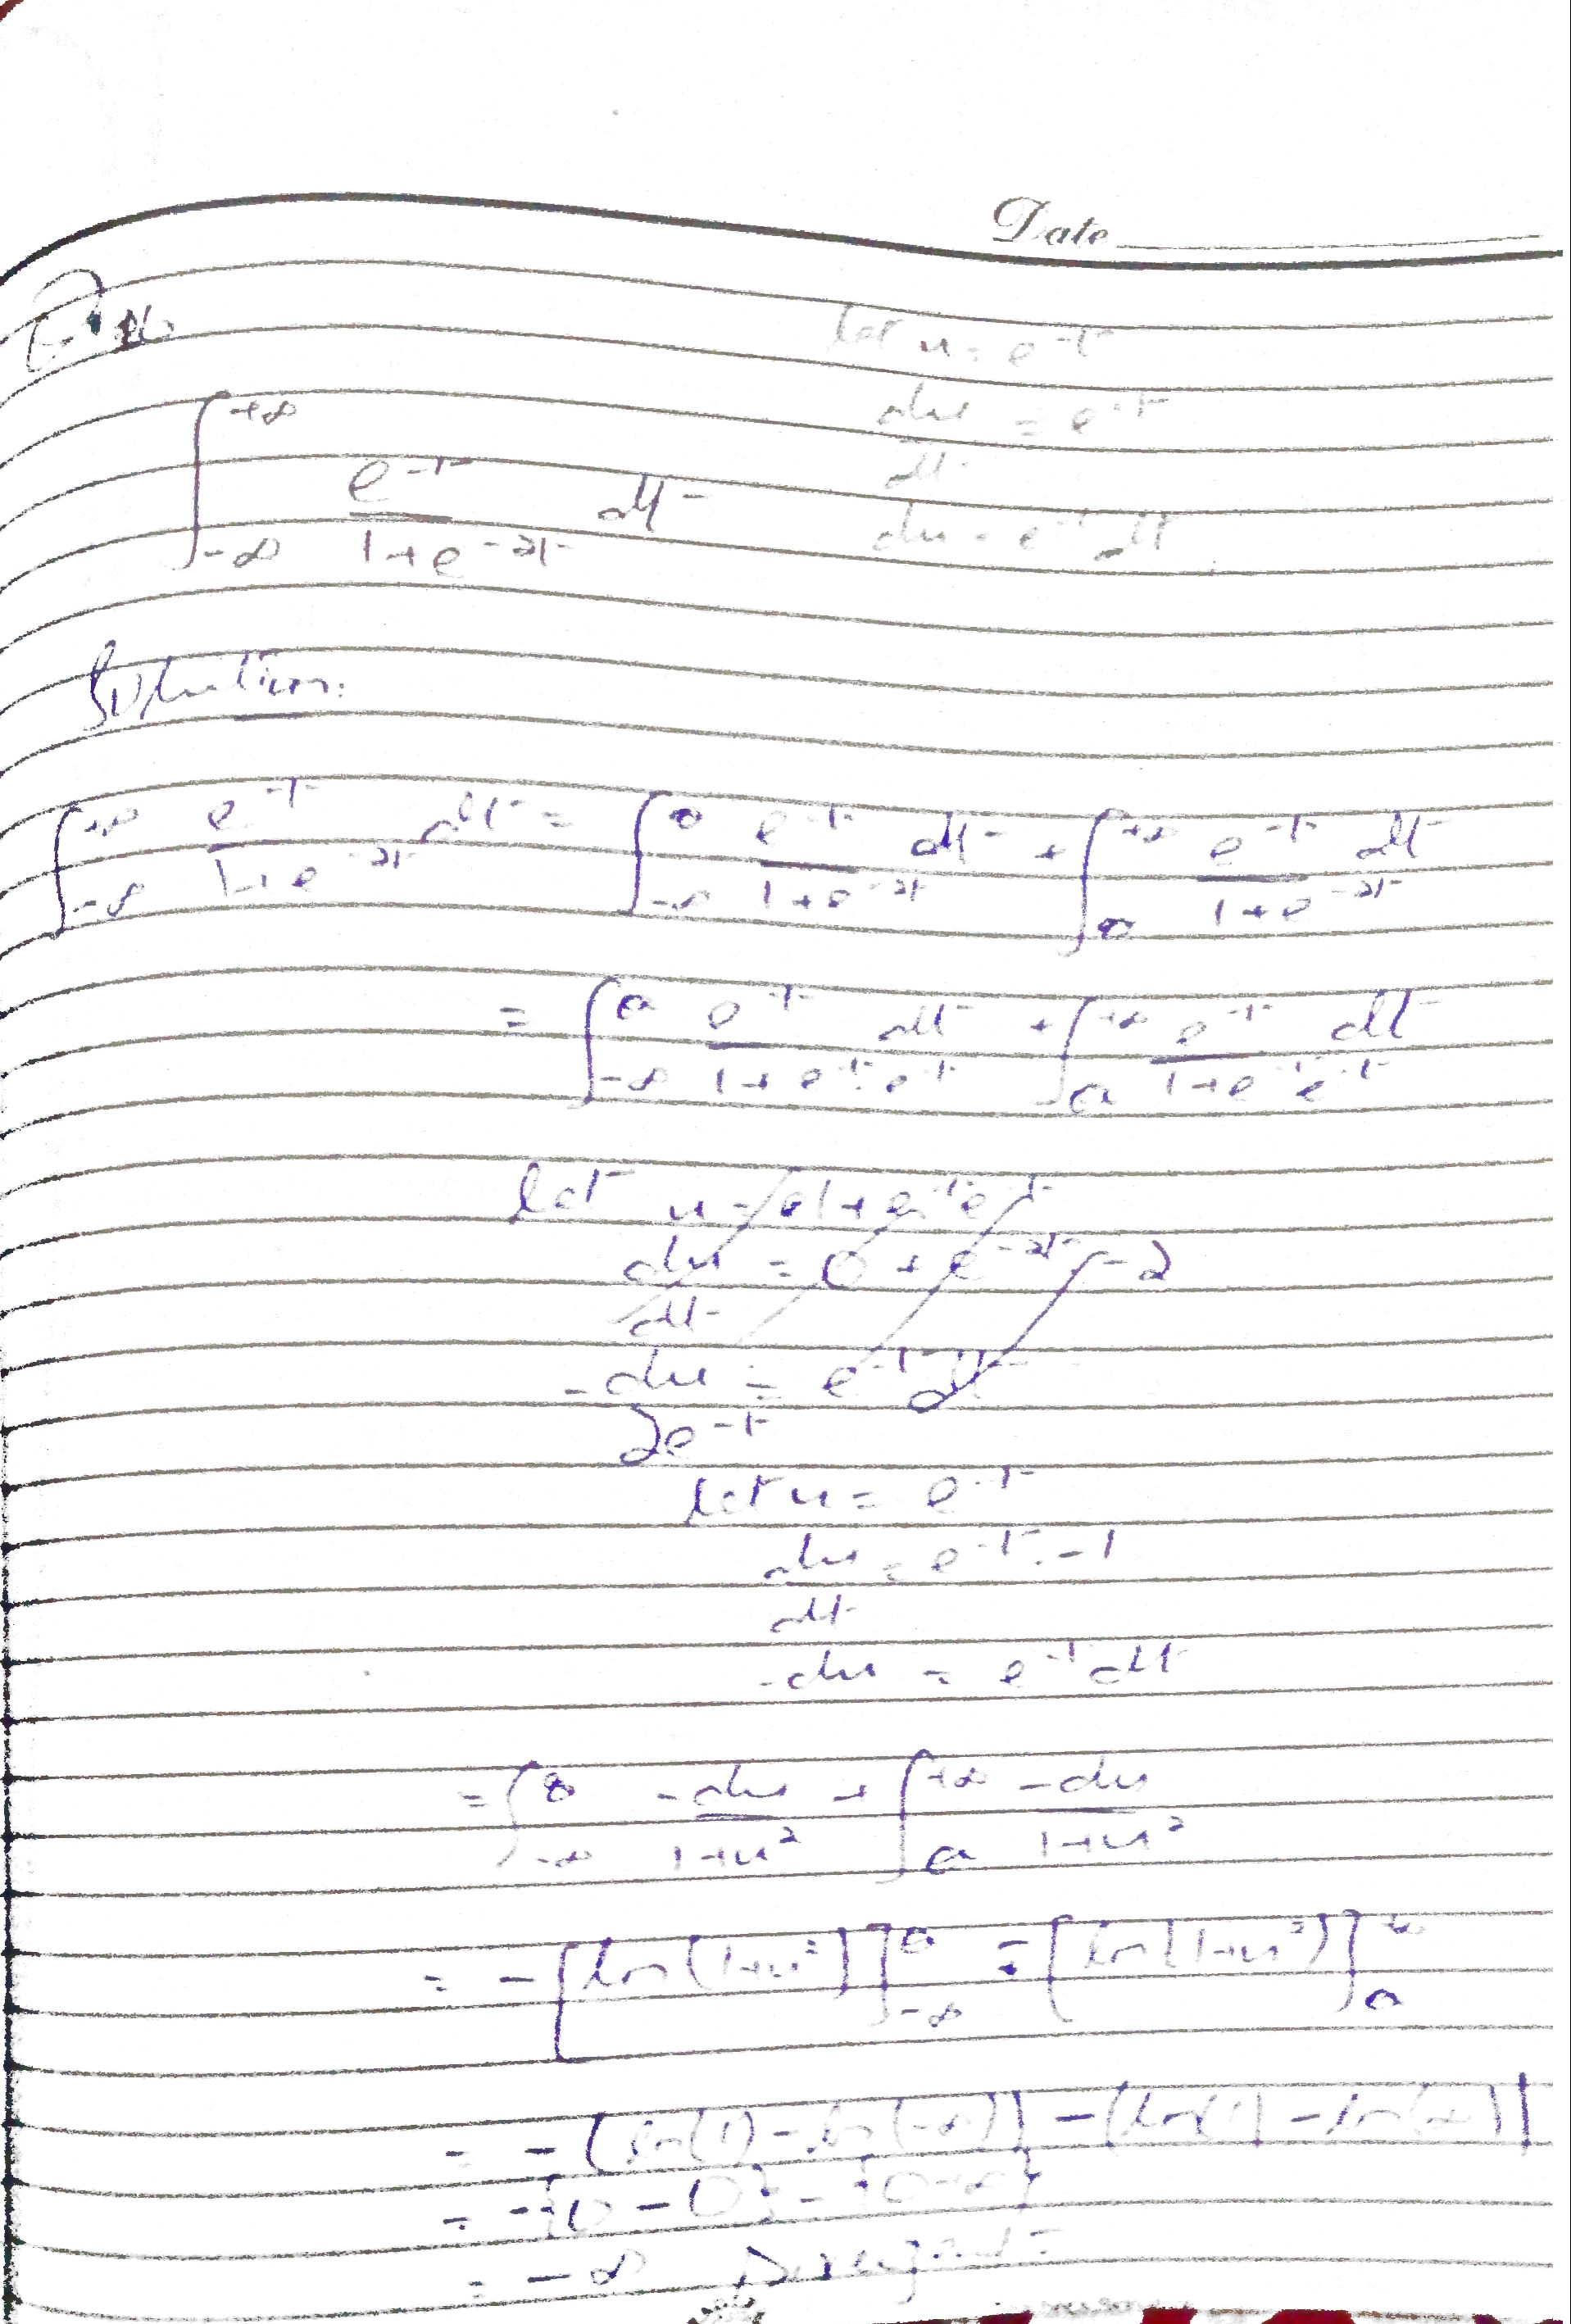 Date
let u = e^-t
du/dt = e^-t
du = e^-t dt
∫_{-∞}^{+∞} e^-t / 1+e^-2t dt
Solution:
∫_{-∞}^{+∞} e^-t / 1+e^-2t dt = ∫_{-∞}^{0} e^-t / 1+e^-2t dt + ∫_{0}^{+∞} e^-t / 1+e^-2t dt
= ∫_{-∞}^{0} e^-t / 1+e^-t.e^-t dt + ∫_{0}^{+∞} e^-t / 1+e^-t e^-t dt
let u = 1+e^-t e^-t
du/dt = 0 + e^-2t . -2
-du / 2e^-t = e^-t dt
let u = e^-t
du/dt = e^-t . -1
-du = e^-t dt
= ∫_{-∞}^{0} -du / 1+u² + ∫_{0}^{+∞} -du / 1+u²
= -[ln(1+u²)]_{-∞}^{0} - [ln(1+u²)]_{0}^{∞}
= -(ln(1) - ln(-∞)) - (ln(1) - ln(∞))
= -{0 - 0} - {0 - ∞}
= -∞ Divergent